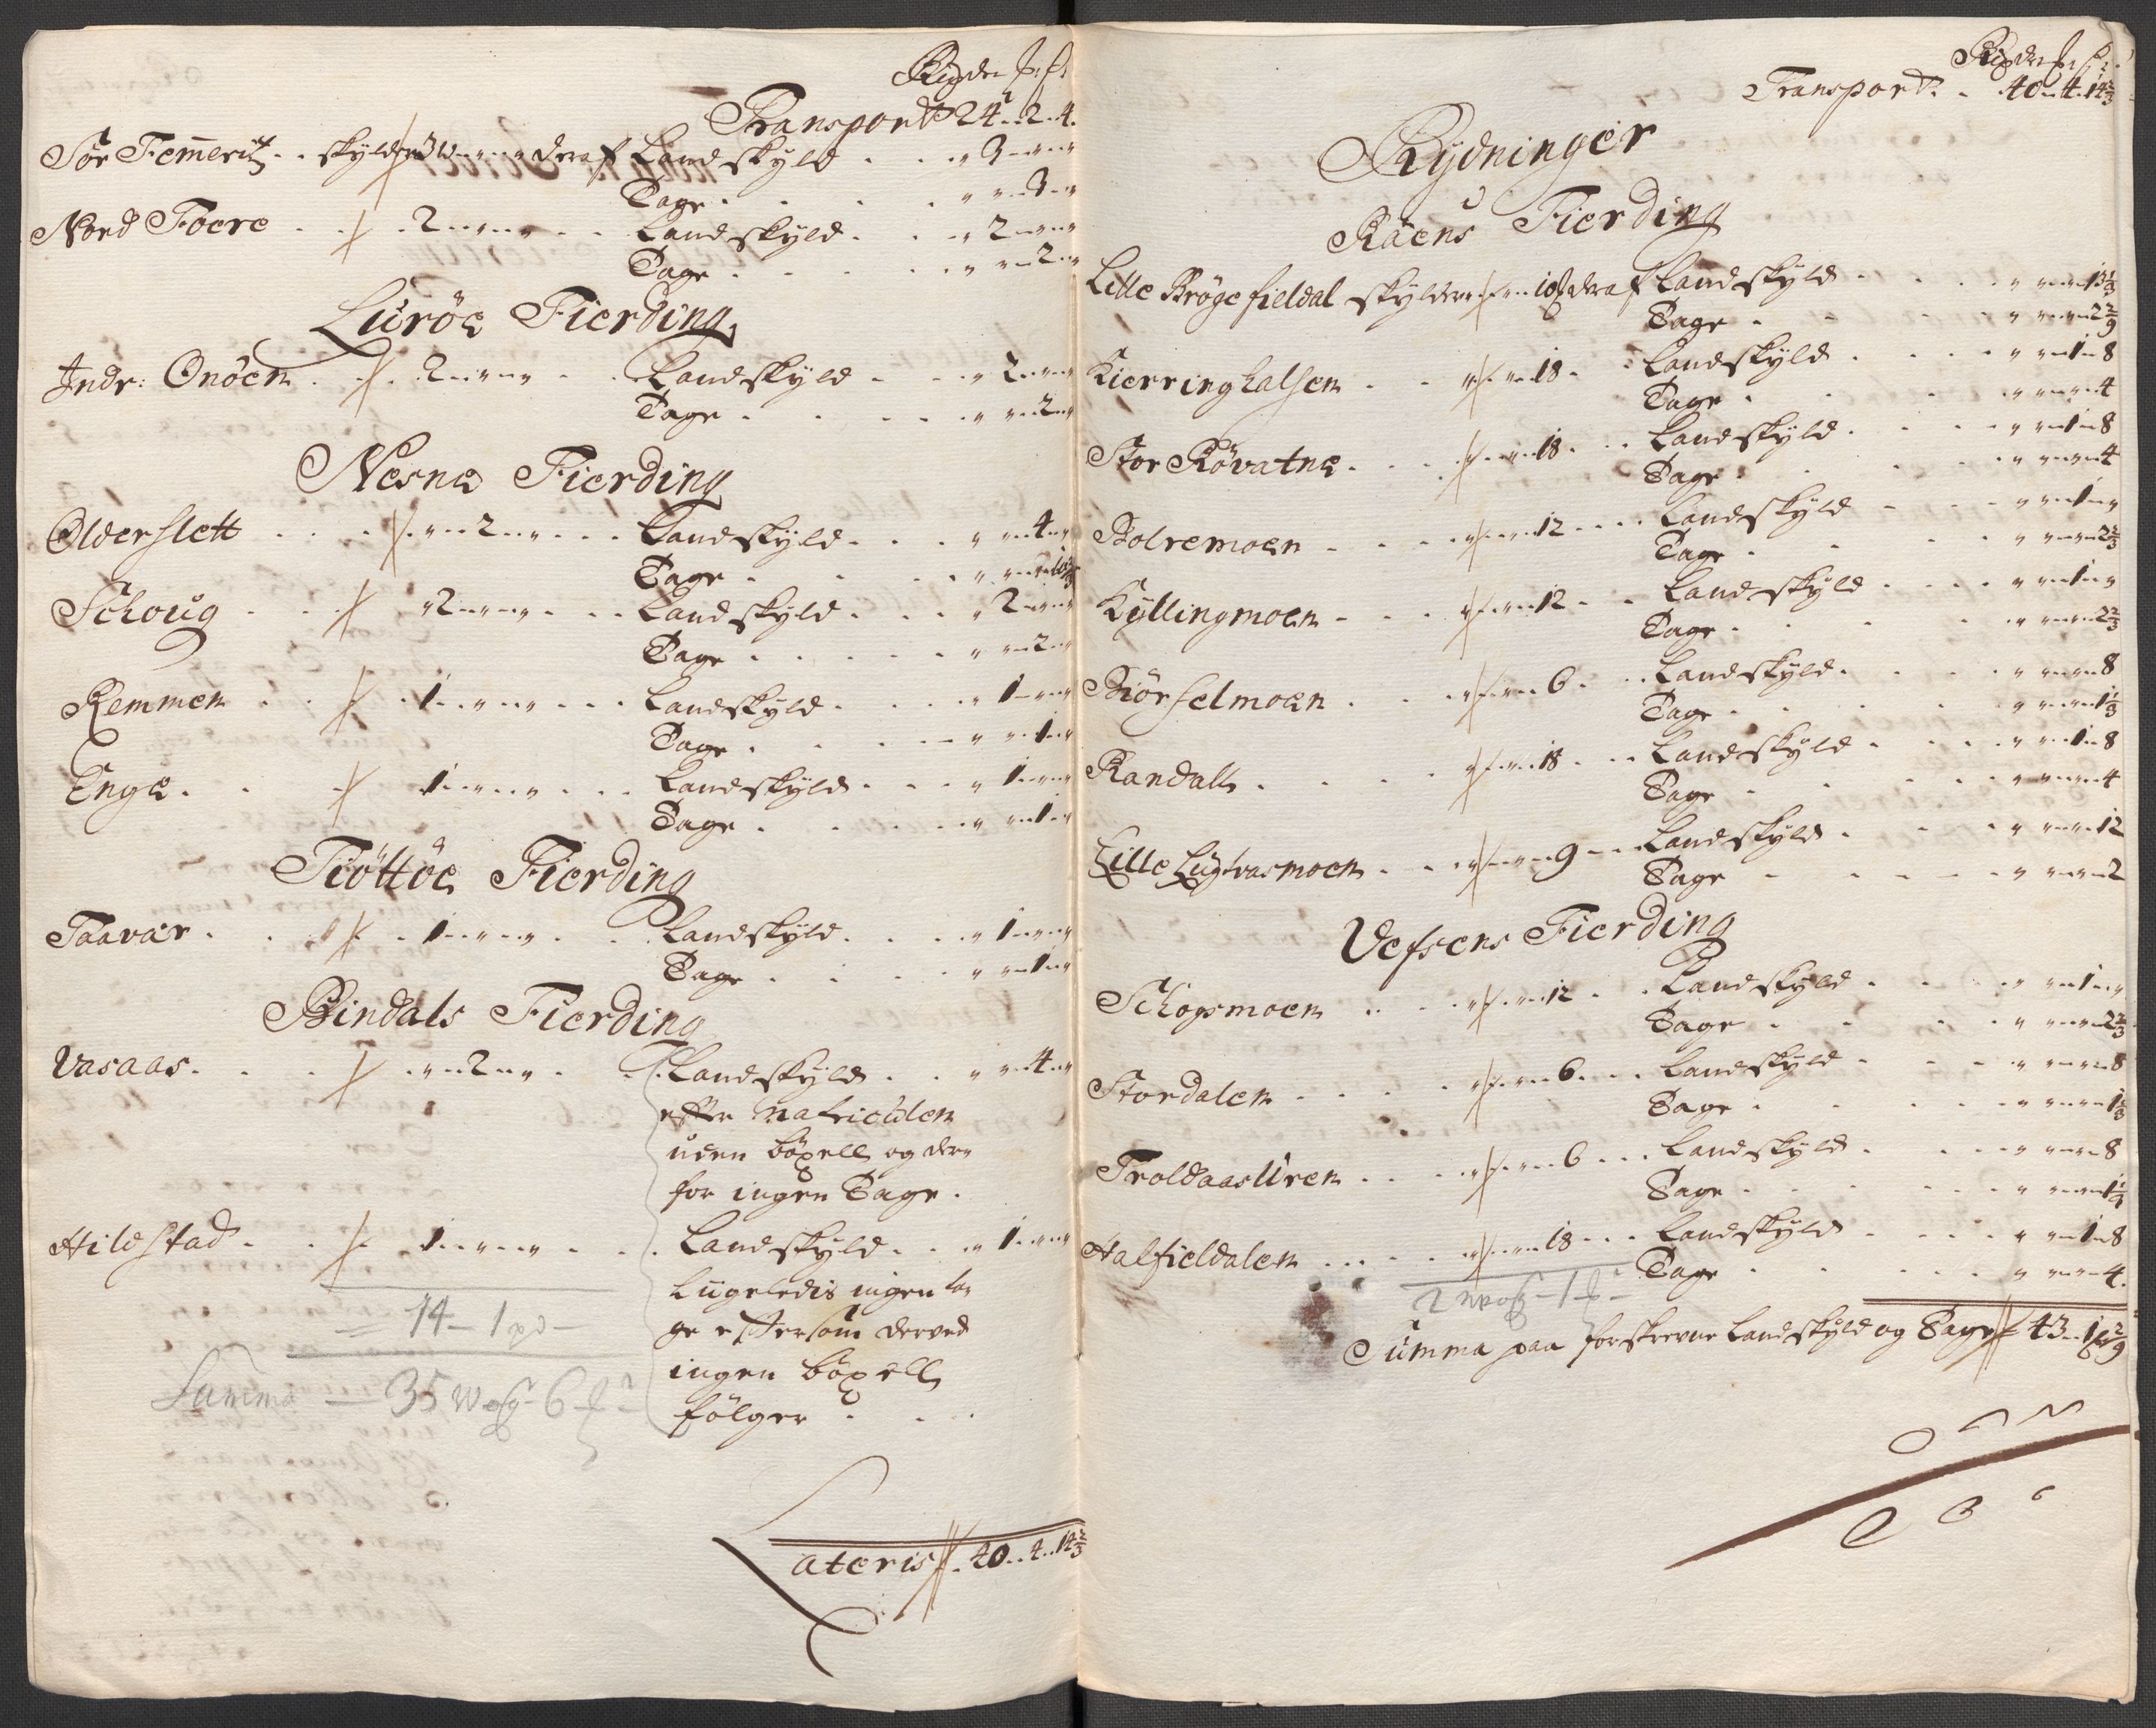 Rixdr ß
Transport 24..2..4.
Sör Femmeris.. skylder 3 W---- deraf Landskyld . . " 3----
Tage . . . . " "-3-"
Nord Foere . . . 2------ . . Landskyld . . " 2----
Tage . . . . " "-2-"
Luröe Fierding
Indr: Onöen . . . 2------ . . Landskyld . . " 2----
Tage . . . . " "-2-"
Nesne Fierding
Olderslett . . . "--2--" . . . Landskyld . . . " "-4-"
Tage . . . . " "--10 2/3
Schoug . . . 2------ . . . Landskyld . . . " 2----
Tage . . . . " "-2-"
Remmen . . . 1------ . . . Landskyld . . . " 1----
Tage . . . . " "-1-"
Enge . . . 1------ . . . Landskyld . . . " 1----
Tage . . . . " "-1-"
Tiöttöe Fierding
Taavær . . . 1------ . . Landskyld . . . " 1----
Tage . . . . " "-1-"
Bindals Fierding
Vasaas . . . "--2--" . . Landskyld . . " "-4-"
efter Matriculen
uden böxell og der-
for ingen Tage .
Hildstad . . . 1------ . . . Landskyld . . " 1----
Ligeledis ingen ta-
ge eftersom derved
ingen böxell
fölger . . .
14 - 1 pd -
Summa - 35 Wog 6 -
Lateris 40..4..14 2/3
Rixdr ß
Transport . . 40..4..14 2/3
Rydninger
Raens Fierding
Lille Brögefieldal skylder "--10 deraf Landskyld . . . " "---13 1/3
Tage . . . . " "---2 2/9
Kierringhalsen . . "--18 . . Landskyld . . . " "-1-8
Tage . . . . " "---4
Stor Rövatne . . . "--18 . . . Landskyld . . . " "-1-8
Tage . . . . " "---4
Bolremoen . . . "--12 . . . Landskyld . . . " "-1-"
Tage . . . . " "---2 2/3
Kyllingmoen . . . "--12 . . Landskyld . . . " "-1-"
Tage . . . . " "---2 2/3
Biörselmoen . . . "--6 . . Landskyld . . . " "---8
Tage . . . . " "---1 1/3
Randall . . . . "--18 . . . Landskyld . . . " "-1-8
Tage . . . . " "---4
Lille Ligtvasmoen . . "--9 . . Landskyld . . . " "---12
Tage . . . . " "---2
Vefsens Fierding
Schogsmoen . . . "--12 . . Landskyld . . . " "-1-"
Tage . . . . " "---2 2/3
Stordalen . . . . "--6 . . . Landskyld . . . " "---8
Tage . . . . " "---1 1/3
Troldaasliren . . . "--6 . . . Landskyld . . . " "---8
Tage . . . . " "---1 1/3
Halfieldalen . . . . "--18 . . . Landskyld . . . " "-1-8
Tage . . . . " "---4.
2 Wog - 1
Summa paa forskrevne Landskyld og Tage 43..1